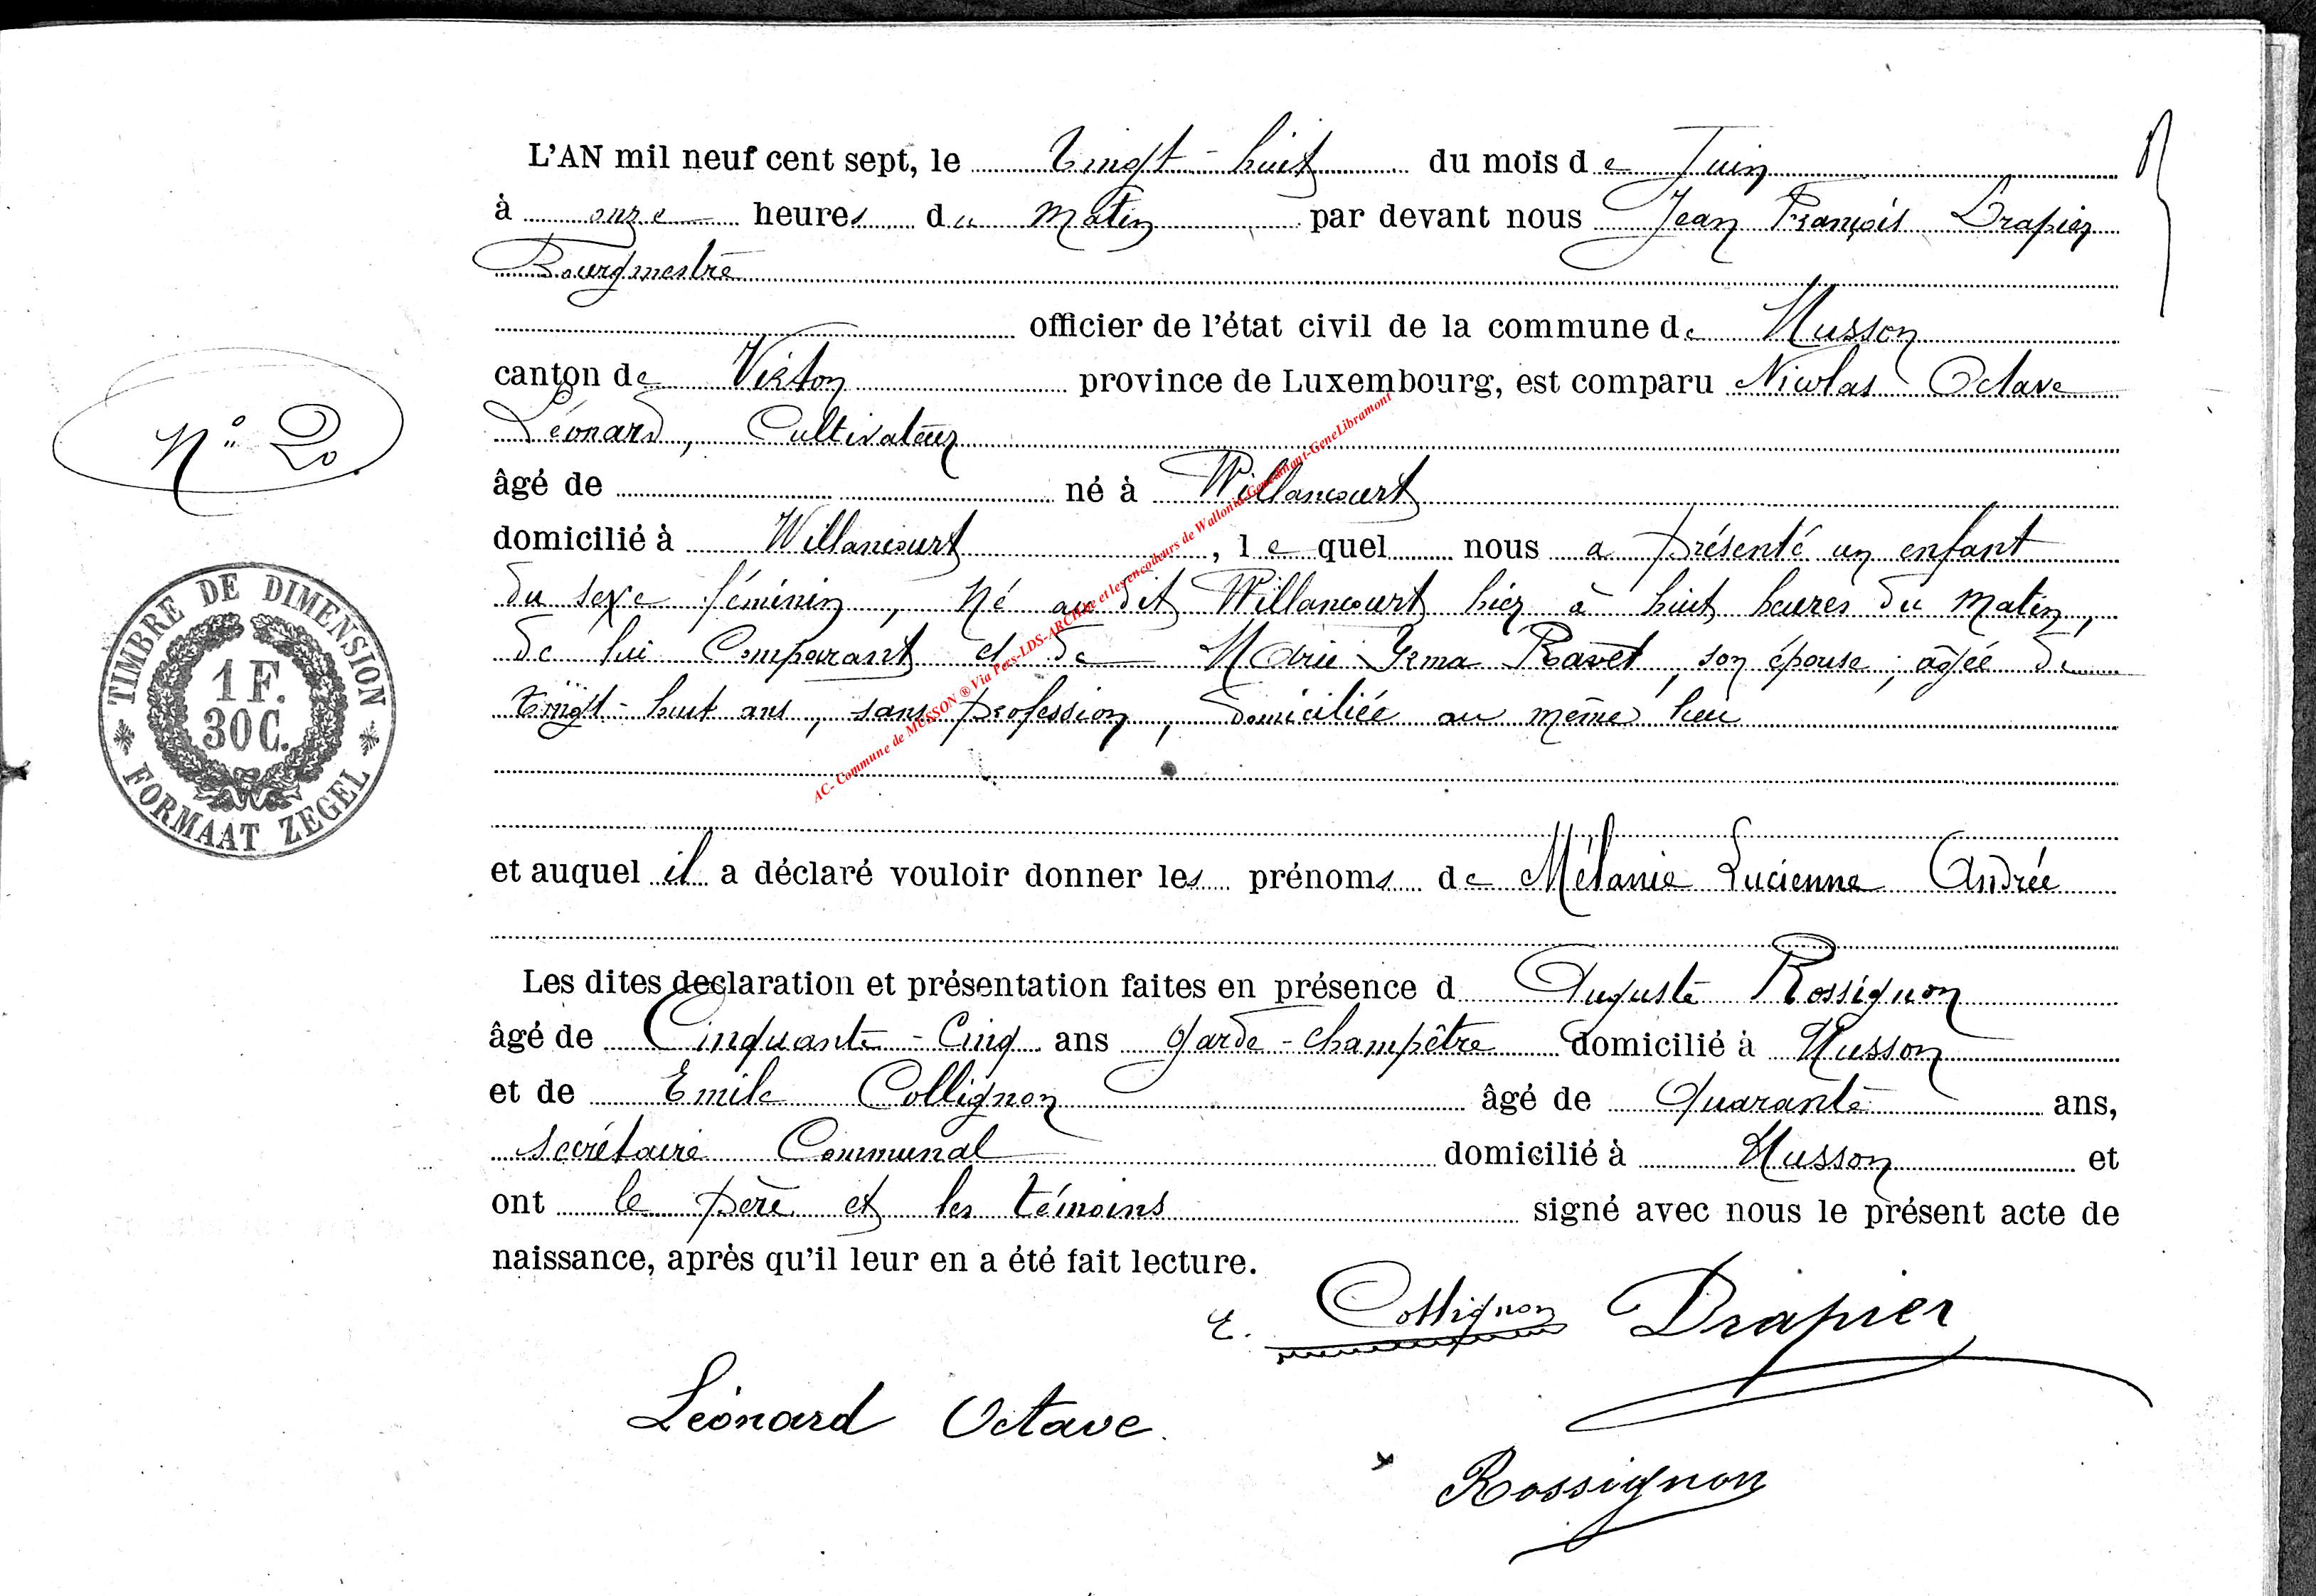 L'AN mil neuf cent sept, le vingt-huit du mois de Juin
à onze heures du matin par devant nous Jean François Drapier
Bourgmestre
officier de l'état civil de la commune de Musson
canton de Virton province de Luxembourg, est comparu Nicolas Octave
Léonard, Cultivateur
âgé de né à Willancourt
domicilié à Willancourt, lequel nous a présenté un enfant
du sexe féminin, né au dit Willancourt hier à huit heures du matin,
de lui Comparant et de Marie Irma Ravet, son épouse, âgée de
vingt-huit ans, sans profession, domiciliée au même lieu
et auquel il a déclaré vouloir donner les prénoms de Mélanie Lucienne Andrée
Les dites declaration et présentation faites en présence d Auguste Rossignon
âgé de Cinquante-Cinq ans garde-champêtre domicilié à Musson
et de Emile Collignon âgé de Quarante ans,
secrétaire Communal domicilié à Musson et
ont le père et les témoins signé avec nous le présent acte de
naissance, après qu'il leur en a été fait lecture.
E. Collignon Drapier
Léonard Octave
Rossignon
N° 20
TIMBRE DE DIMENSION
1 F.
30 C.
FORMAAT ZEGEL
AC- Commune de MUSSON ® Via Pers-LDS-ARCHive et les encodeurs de Wallonia-Genedinant-GeneLibramont